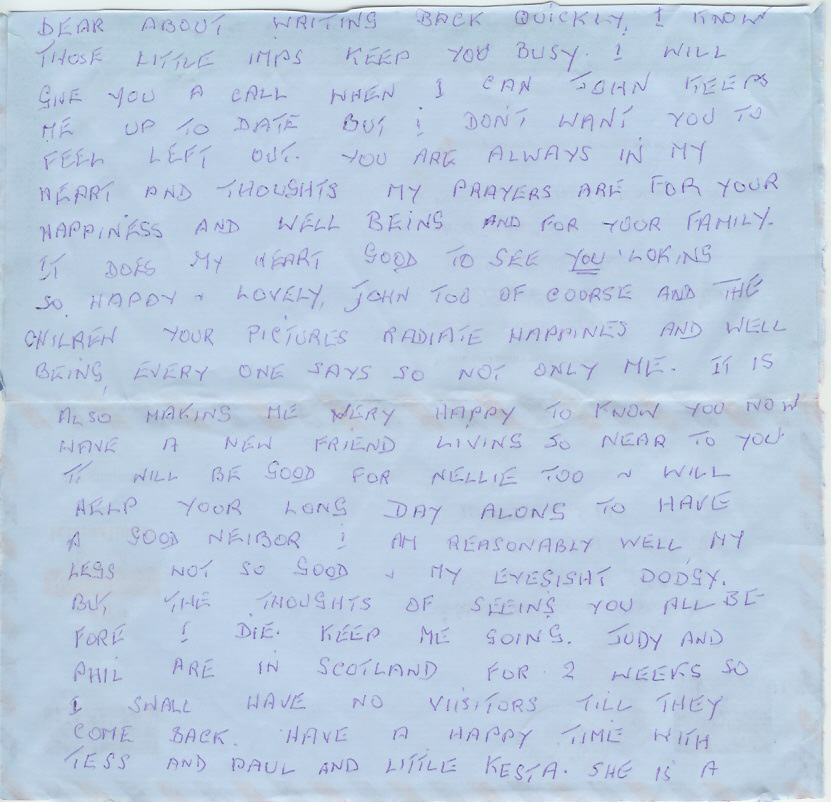 DEAR ABOUT WRITING BACK QUICKLY, I KNOW
THOSE LITTLE IMPS KEEP YOU BUSY. I WILL
GIVE YOU A CALL WHEN I CAN JOHN KEEPS
ME UP TO DATE BUT I DON'T WANT YOU TO
FEEL LEFT OUT. YOU ARE ALWAYS IN MY
HEART AND THOUGHTS MY PRAYERS ARE FOR YOUR
HAPPINESS AND WELL BEING AND FOR YOUR FAMILY.
IT DOES MY HEART GOOD TO SEE YOU LOKING
SO HAPPY & LOVELY, JOHN TOO OF COURSE AND THE
CHILREN YOUR PICTURES RADIATE HAPPINES AND WELL
BEING, EVERY ONE SAYS SO NOT ONLY ME. IT IS
ALSO MAKING ME VERY HAPPY TO KNOW YOU NOW
HAVE A NEW FRIEND LIVING SO NEAR TO YOU
IT WILL BE GOOD FOR NELLIE TOO & WILL
HELP YOUR LONG DAY ALONG TO HAVE
A GOOD NEIBOR I AM REASONABLY WELL MY
LEGS NOT SO GOOD & MY EYESIGHT DODGY.
BUT THE THOUGHTS OF SEEING YOU ALL BE
FORE I DIE. KEEP ME GOING. JUDY AND
PHIL ARE IN SCOTLAND FOR 2 WEEKS SO
I SHALL HAVE NO VIISITORS TILL THEY
COME BACK. HAVE A HAPPY TIME WITH
TESS AND PAUL AND LITTLE KESTA. SHE IS A